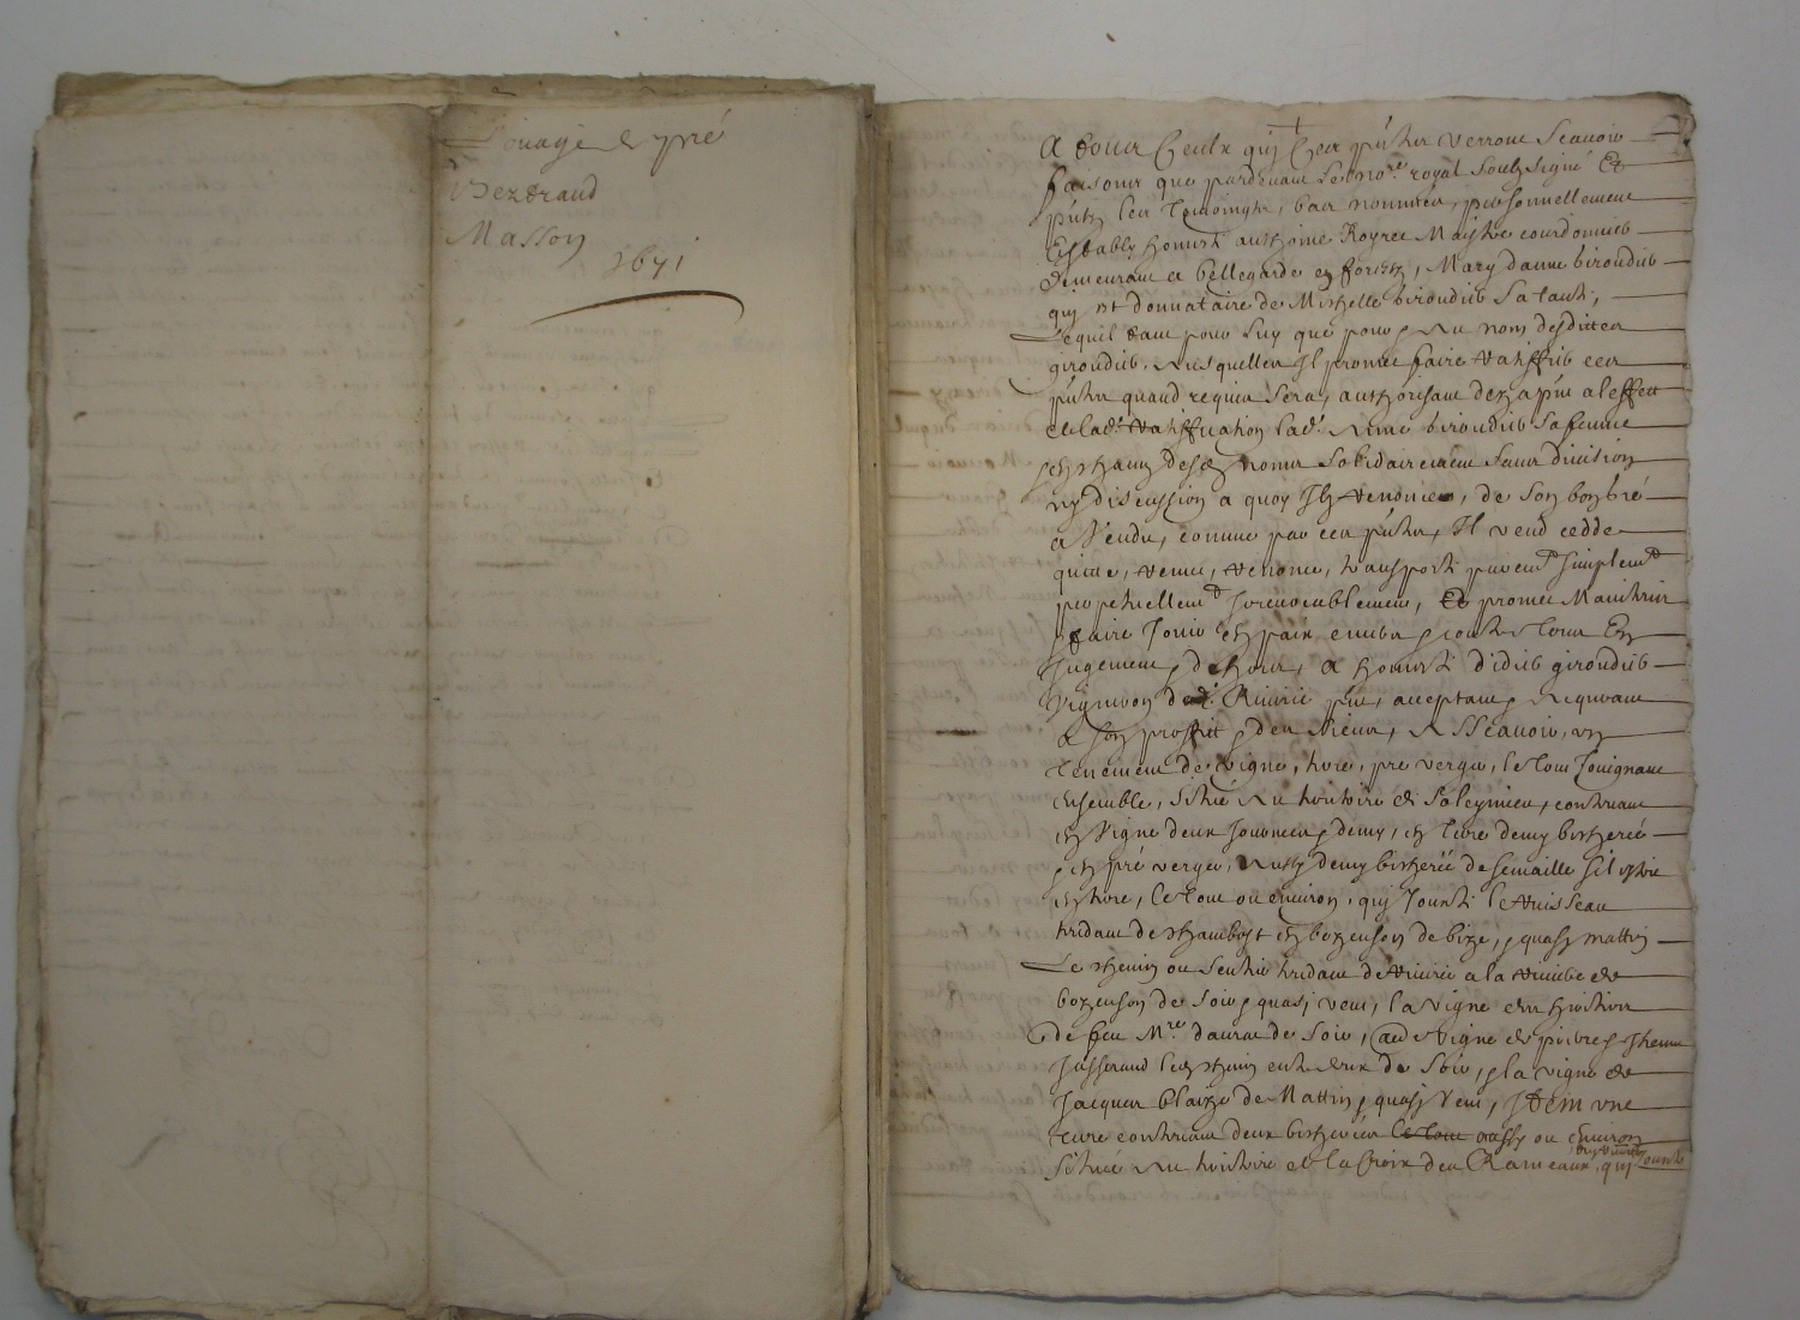 Louage de pré
Bertrand
Masson
1671
A tous ceulx quy ces pntes verront scauoir
faisons que pardeuant le nore royal soubzsigné Et
pntz les tesmoingtz, bas nommés, personnellement
Estably honneste anthoine Royret Maistre courdonnier
demeurant a bellegarde en forestz, Mary danne girondier
quy est donnataire de Michelle girondier sa tante,
Lequel tant pour luy que pour et au nom desdittes
girondier, ausquelles Il promet faire rattiffier ces
pntes quand requis sera, authorisant des a pnt a leffect
de lade rattiffication lade anne girondier sa femme
et chacung desdz noms solidairement sans diuision
ny discussion a quoy Ilz renonce, de son bon gré
a Vendu, comme par ces pntes, Il vend cedde
quitte, remet, renonce, transporte puremt simplemt
perpetuellemt Irreuocablement, Et promet Maintenir
faire Jouir en paix enuers et contre tous En
Jugement et dehors, a honneste didier girondier
Vigneron dud. Riuirie pnt, acceptant et requerant
a son proffit et des siens, A Scauoir, un
tenement de vigne, terre, pre verger, le tout Joignant
ensemble, situé au territoire de Soleymieu, contenant
en Vigne deux Journees et demy, en terre demy bicheree
et en pré verger, aussy demy bicherée de semaille sil estoit
en terre, le tout ou enuiron, quy Jouxte le ruisseau
tendant de chambost en bozenson de bize, et quasy mattin
Le chemin ou sentier tendant de riuirie a la riuiere de
bozenson de soir et quasi vent, la vigne des heritiers
de feu Mre daurat de soir, autre vigne de pierre et Jheane
Jasserand led chemin entre deux de soir, et la vigne de
Jacques blaize de Mattin et quasy Vent, Item vne
terre contenant deux bicherées le tout aussy ou enuiron
situé au territoire de la Croix des Rameaux, quy Jouxte